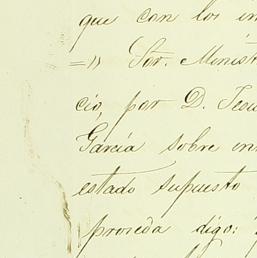 que con los in
=» Sor. Ministr
cio, por D. Jesu
García sobre in
estado supuesto
proceda digo: